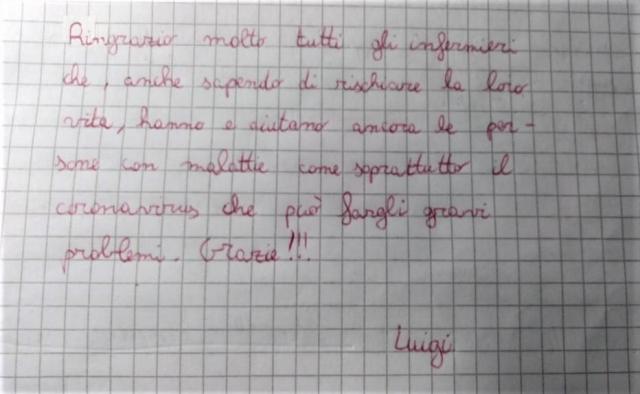 Ringrazio molto tutti gli infermieri
che, anche sapendo di rischiare la loro
vita, hanno e aiutano ancora le per-
sone con malattie come soprattutto il
coronavirus che può fargli gravi
problemi. Grazie!!!
Luigi